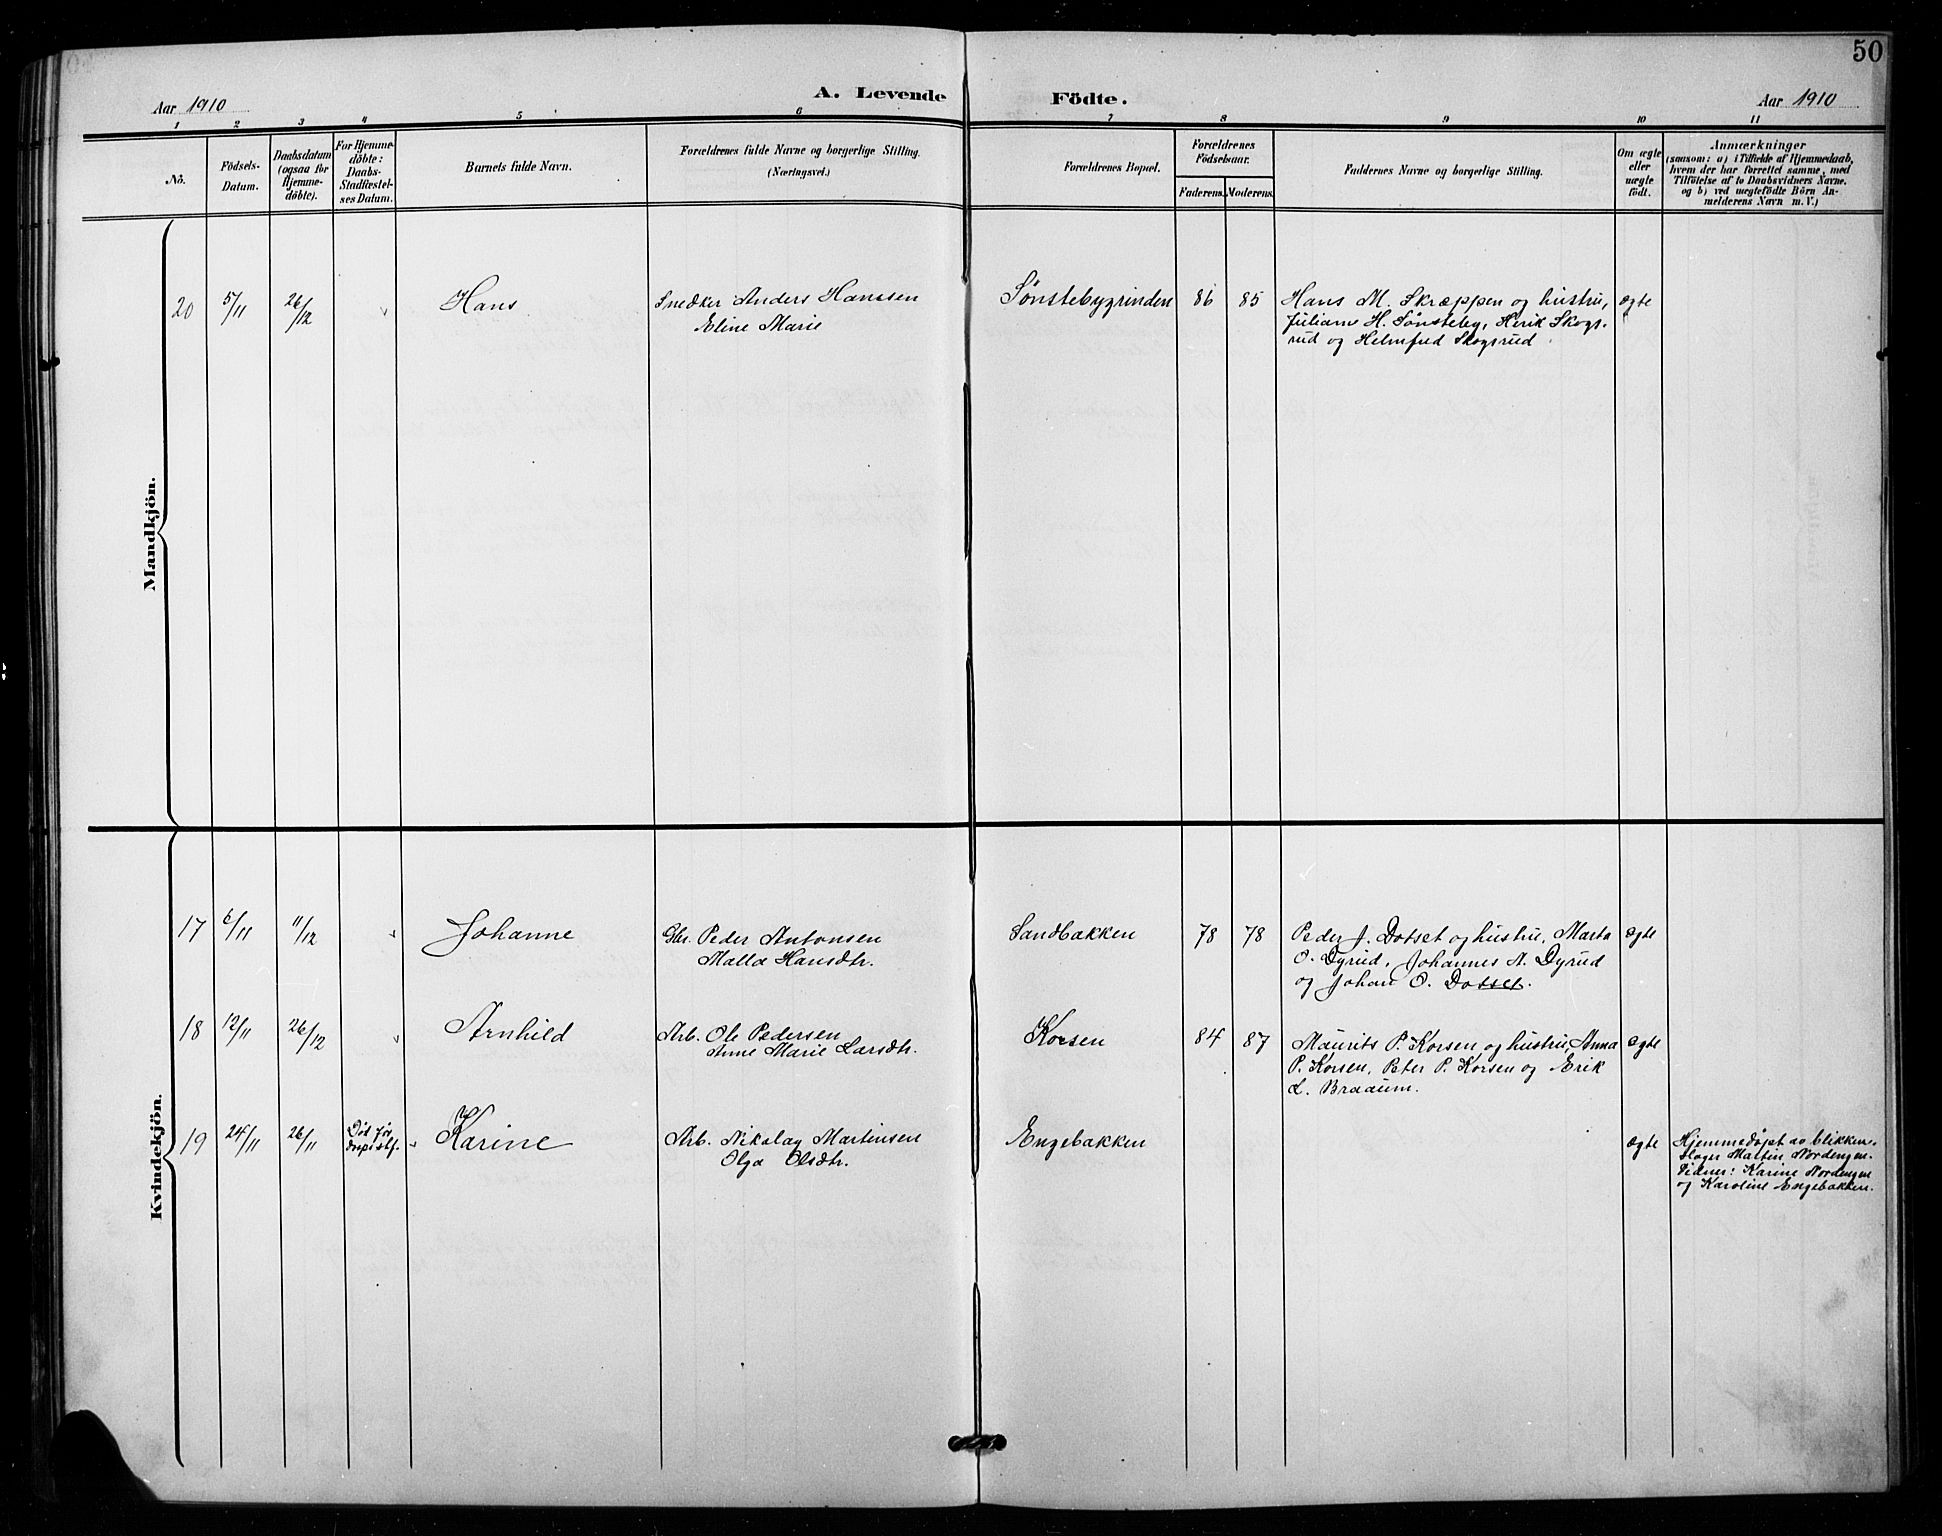 50
Aar 1910
A. Levende Födte.
Aar 1910
1 2 3 4 5 6 7 8 9 10 11
No.
Födsels-
Datum.
Daabsdatum
(ogsaa for
Hjemme-
döbte).
For Hjemme-
döbte:
Daabs-
Stadfæstel-
ses Datum.
Barnets fulde Navn.
Forældrenes fulde Navne og borgerlige Stilling.
(Næringsvei.)
Forældrenes Bopæl.
Forældrenes
Födselsaar.
Faderens. Moderens.
Faddernes Navne og borgerlige Stilling.
Om ægte
eller
uægte
födt.
Anmærkninger
(saasom: a) i Tilfælde af Hjemmedaab,
hvem der har forrettet samme, med
Tilföielse af to Daabsvidners Navne.
og b) ved uægtefödte Börn An-
melderens Navn m. V.)
Mandkjön.
20 5/11 26/12 Hans
Snedker Anders Hanssen
Eline Marie
Sønstebygrinden 86 85
Hans M. Skræppen og hustru,
Juliane H. Sønsteby, Henrik Skogs-
rud og Helmfred Skogsrud
ægte
Kvindekjön.
17 6/11 11/12 Johanne
Gbr. Peder Antonsen
Malla Hansdtr.
Sandbakken 78 78
Peder J. Dotset og hustru, Marta
O. Dyrud, Johannes A. Dyrud
og Johan O. Dotset.
ægte
18 12/11 26/12 Arnhild
Arb. Ole Pedersen
Anne Marie Larsdtr.
Korsen 84 87
Maurits P. Korsen og hustru, Anna
P. Korsen, Peter P. Korsen og Erik
L. Braaum.
ægte
19 24/11 26/11 Død før
Karine
Arb. Nikolay Martinsen
Olga Olsdtr.
Engebakken
ægte
Hjemmedøpt av blikken-
slager Martin Nordengen.
Vidner: Karine Nordengen
og Karoline Engebakken.